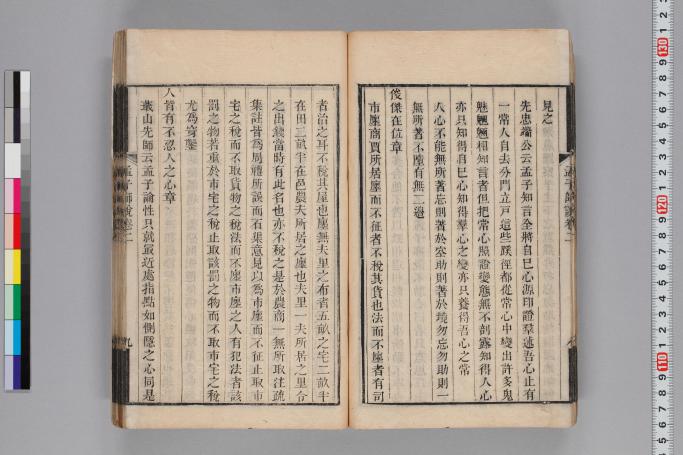 見之
先忠端公云孟子知言全將自已心源印證羣迷吾心止有
一常人自去分門立戸這些蹊徑都從常心中變出許多鬼
魅魍魎相知言者但把常心照證變態無不剖露知得人心
亦只知得自已心知得羣心之變亦只養得吾心之常
人心不能無所著忘則著於空助則著於境勿忘勿助則一
無所著不應有無二邉
俊傑在位章
市廛商賈所居廛而不征者不稅其貨也法而不廛者有司
者治之耳不稅其屋也廛無夫里之布者五畝之宅二畝半
在田二畝半在邑農夫所居之廛也夫里一夫所居之里合
之出錢當時有此名也亦不稅之是於農商一無所取注疏
集註皆為周禮所誤而石渠意見以為市廛而不征止取市
宅之稅而不取貨物之稅法而不廛市廛之人有犯法者該
罰之物若重於市宅之稅止取該罰之物而不取市宅之稅
尤為穿鑿
人皆有不忍人之心章
蕺山先師云孟子論性只就最近處指點如惻隱之心同是
孟子師說卷二
九